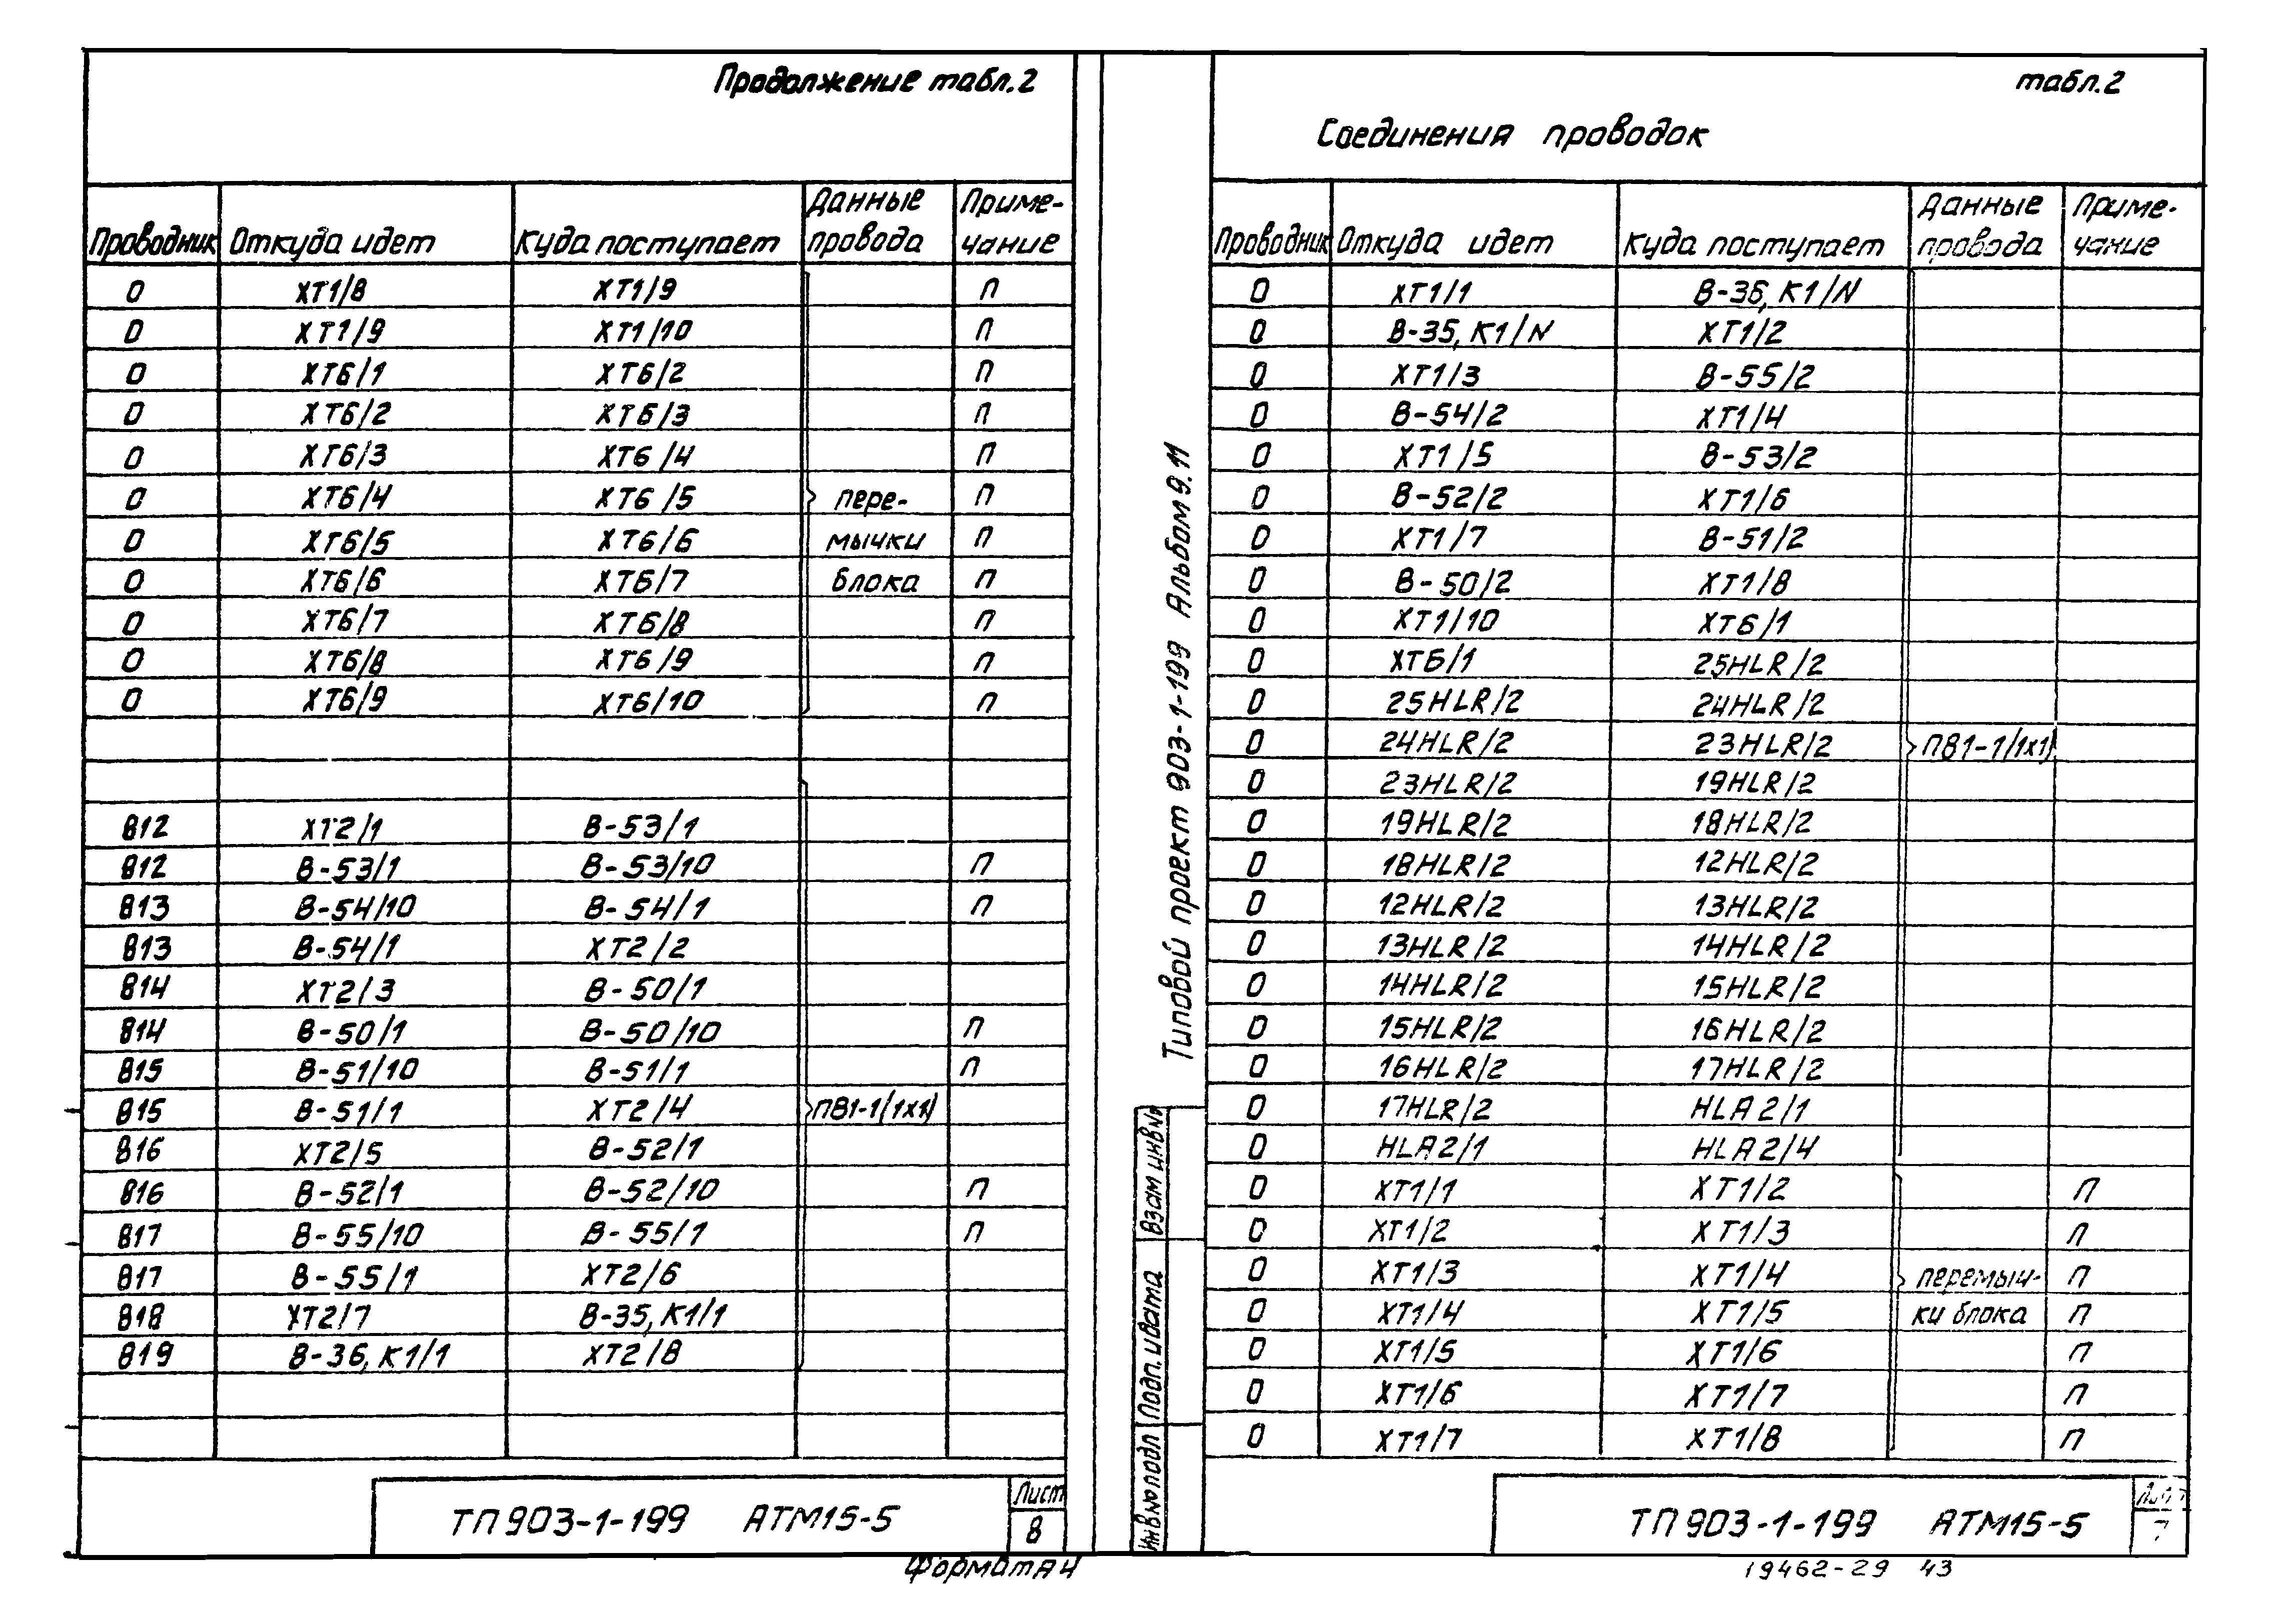 Продолжение табл.2
Проводник Откуда идет Куда поступает Данные провода Приме-чание
0 XT1/8 XT1/9 П
0 XT1/9 XT1/10 П
0 XT6/1 XT6/2 П
0 XT6/2 XT6/3 П
0 XT6/3 XT6/4 П
0 XT6/4 XT6/5 пере- П
0 XT6/5 XT6/6 мычки П
0 XT6/6 XT6/7 блока П
0 XT6/7 XT6/8 П
0 XT6/8 XT6/9 П
0 XT6/9 XT6/10 П
812 XT2/1 В-53/1
812 В-53/1 В-53/10 П
813 В-54/10 В-54/1 П
813 В-54/1 XT2/2
814 XT2/3 В-50/1
814 В-50/1 В-50/10 П
815 В-51/10 В-51/1 П
815 В-51/1 XT2/4 ПВ1-1(1х1)
816 XT2/5 В-52/1
816 В-52/1 В-52/10 П
817 В-55/10 В-55/1 П
817 В-55/1 XT2/6
818 XT2/7 В-35, К1/1
819 В-36, К1/1 XT2/8
ТП 903-1-199 АТМ15-5
Лист
8
Формат А4
Типовой проект 903-1-199 Альбом 9.11
Взам инв№
Подп. и дата
Инв№ подл
табл.2
Соединения проводок
Проводник Откуда идет Куда поступает Данные провода Приме-чание
0 XT1/1 В-36, К1/N
0 В-35, К1/N XT1/2
0 XT1/3 В-55/2
0 В-54/2 XT1/4
0 XT1/5 В-53/2
0 В-52/2 XT1/6
0 XT1/7 В-51/2
0 В-50/2 XT1/8
0 XT1/10 XT6/1
0 XT6/1 25HLR/2
0 25HLR/2 24HLR/2
0 24HLR/2 23HLR/2 ПВ1-1(1х1)
0 23HLR/2 19HLR/2
0 19HLR/2 18HLR/2
0 18HLR/2 12HLR/2
0 12HLR/2 13HLR/2
0 13HLR/2 14HLR/2
0 14HLR/2 15HLR/2
0 15HLR/2 16HLR/2
0 16HLR/2 17HLR/2
0 17HLR/2 HLA2/1
0 HLA2/1 HLA2/4
0 XT1/1 XT1/2 П
0 XT1/2 XT1/3 П
0 XT1/3 XT1/4 перемыч- П
0 XT1/4 XT1/5 ки блока П
0 XT1/5 XT1/6 П
0 XT1/6 XT1/7 П
0 XT1/7 XT1/8 П
ТП 903-1-199 АТМ15-5
Лист
7
19462-29 43